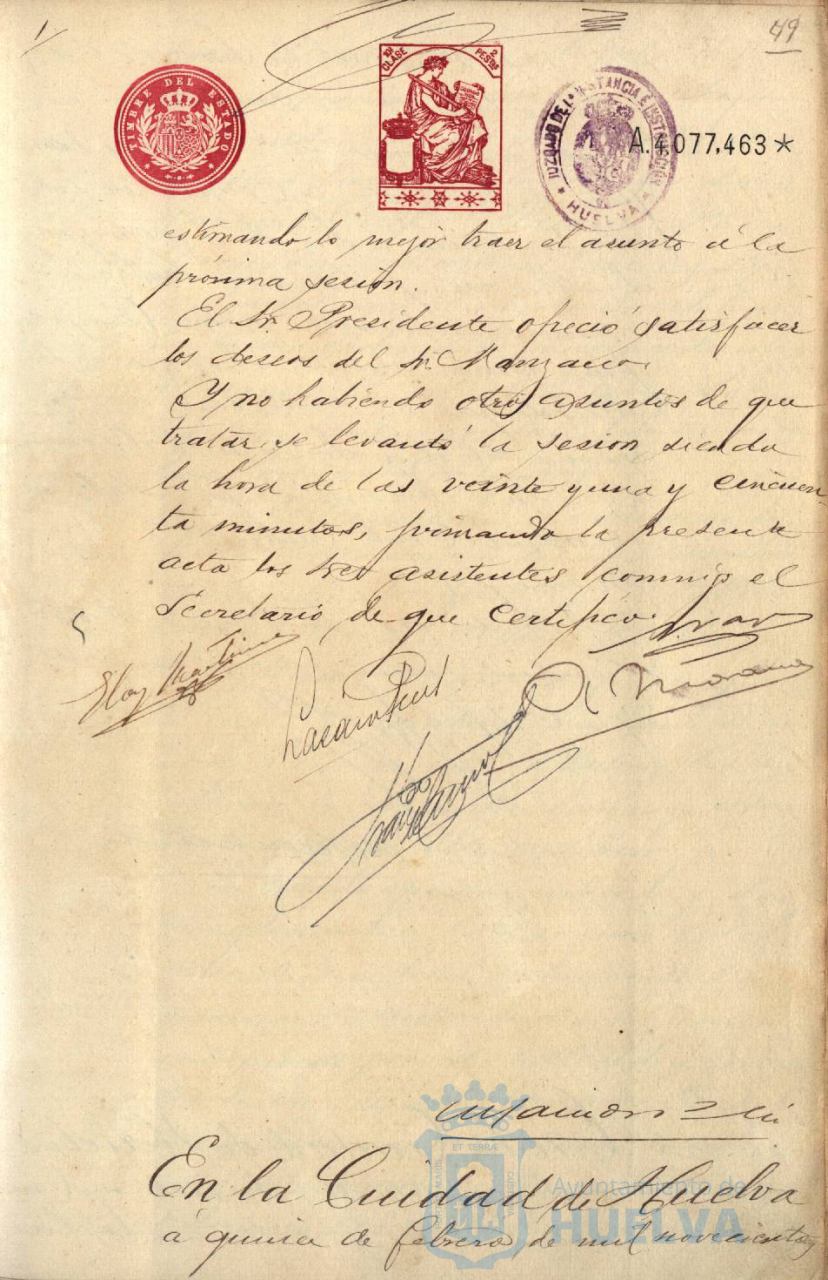 1/
49
TIMBRE DEL ESTADO
10ª CLASE 2 PESTAS
JUZGADO DE 1ª INSTANCIA E INSTRUCCIÓN
HUELVA
A.4.077,463*
estimando lo mejor traer el asunto á la
próxima sesión.
El Sr. Presidente ofreció satisfacer
los deseos del Sr. Manzano.
Y no habiendo otros asuntos de que
tratar, se levantó la sesion siendo
la hora de las veinte y una y cincuen-
ta minutos, firmando la presente
acta los Sres asistentes conmigo el
Secretario de que certifico.
Eloy Martinez
En la Ciudad de Huelva
á quince de febrero de mil novecientos
ET TERRÆ
Ayuntamiento de
HUELVA